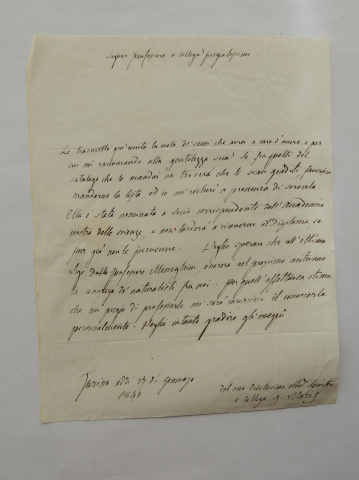 Signor professore e collega pregiatissimo
Le trasmetto qui unita la nota di semi che avrei a caro d'avere e per
cui mi raccomando alla gentilezza sua. Se fra quelli del
catalogo che le mandai ne trovera che le siano graditi, favorisca
mandarne la lista ed io mi rechero a premura di servirla.
Ella è stata nominata a socio corrispondente dell'Accademia
nostra delle scienze, e non tarderà a riceverne il Diploma se
pur già non le pervenne. Voglio sperare che all'ottimo
Sige Dotto professore Meneghini ancora nel prossimo autunno
a di naturalisti fra noi. Per quell'affettuosa stima
che mi pregio di professarle mi sarà il conoscerla
personalmente. Voglia intanto gradire gli ossequi
Torino addi 27 di Gennajo
1840
del suo devotissimo obbl. servitore
e collega G. Moris